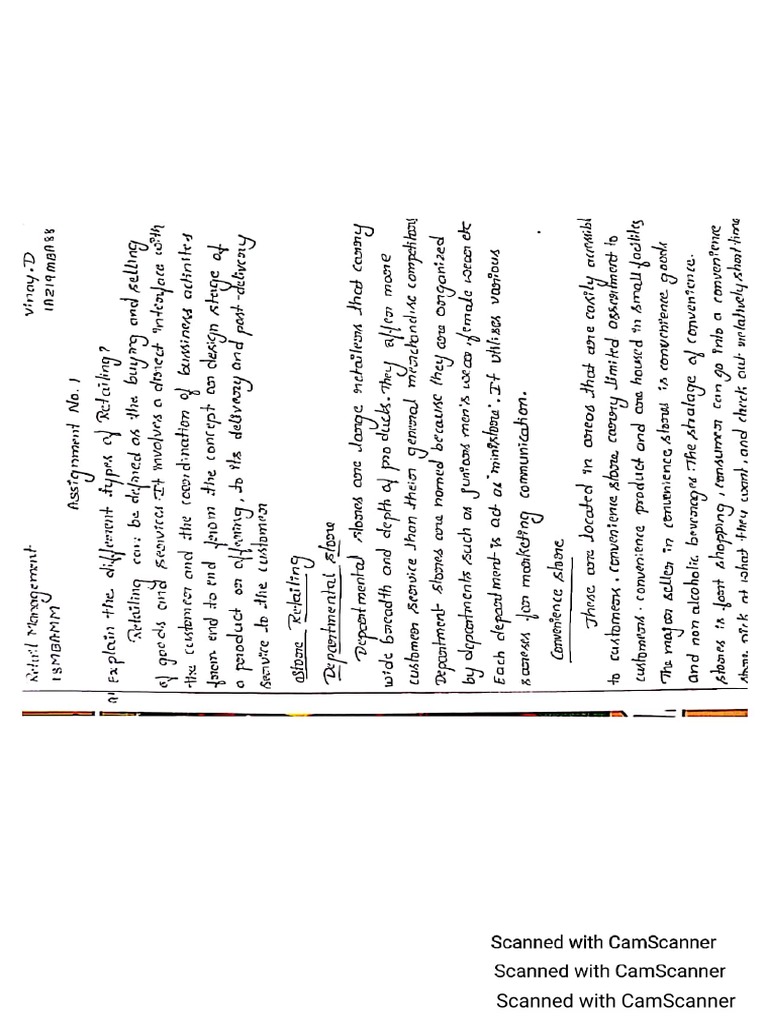 Retail Management
Vinay.D
18MBAMM
1A219MBA88
Assignment No. 1
Explain the different types of Retailing?
Retailing can be defined as the buying and selling
of goods and services. It involves a direct interface with
the customer and the coordination of bussiness activities
from end to end from the concept or design stage of
a product or offering, to its delivery and post-delivery
service to the customer
Store Retailing
Departmental store
Departmental stores are large retailers that carry
wide breadth and depth of products. They offer more
customer service than their general merchandise competitors
Department stores are named because they are organized
by departments such as juniors men's wear, female wear etc
Each department is act as "ministore". It utilises various
sources for marketing communication.
Convenience store
These are located in areas that are easily accessibl
to customers. convenience store carry limited assortment to
customers. convenience product and are housed in small facilites
The major seller in convenience stores is convenience goods
and non alcoholic beverages. The of convenience
stores is fast shopping, consumer can go into a convenience
store pick at what they want, and check out relatively short time
Scanned with CamScanner
Scanned with CamScanner
Scanned with CamScanner